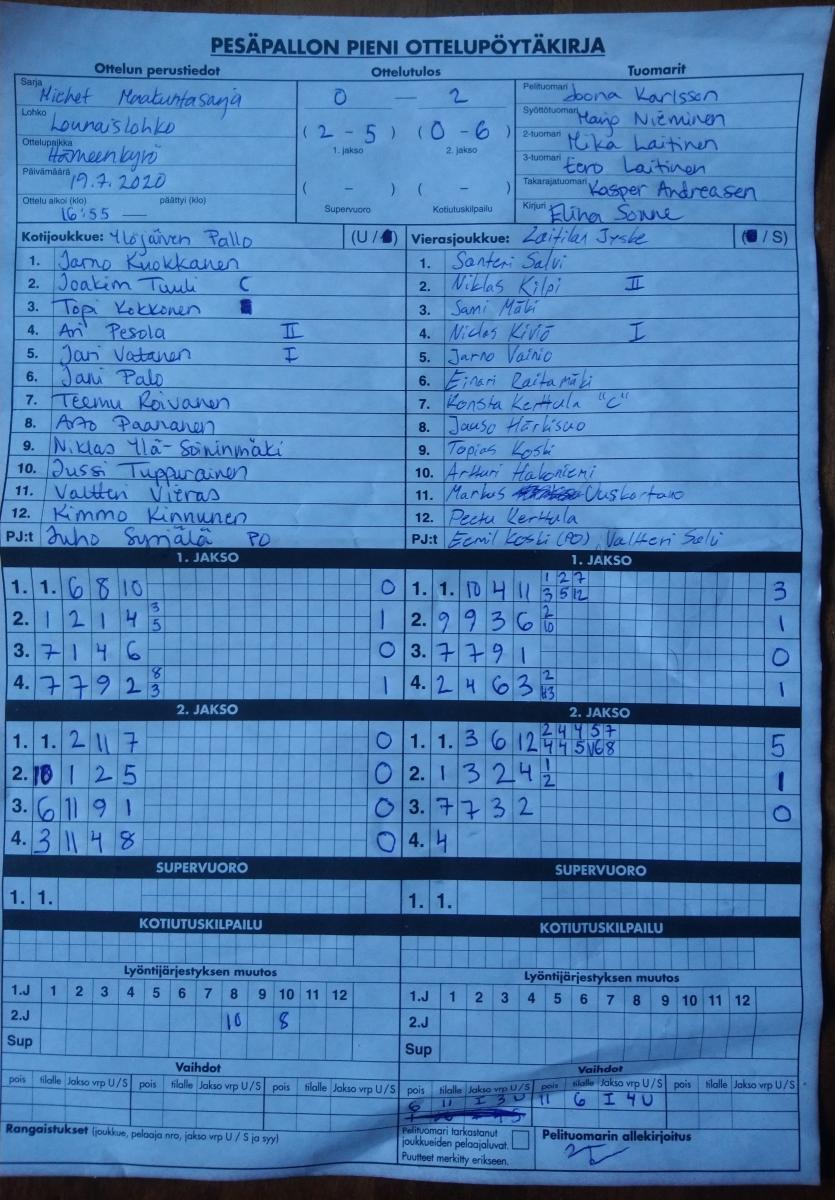 PESÄPALLON PIENI OTTELUPÖYTÄKIRJA
Ottelun perustiedot
Ottelutulos
Tuomarit
Sarja Miehet Maakuntasarja
Lohko Lounaislohko
Ottelupaikka Hämeenkyrö
Päivämäärä 19.7.2020
Ottelu alkoi (klo) päättyi (klo)
16:55 —
0 — 2
(2 - 5) (0 - 6)
1. jakso 2. jakso
( - ) ( - )
Supervuoro Kotiutuskilpailu
Pelituomari Joona Karlsson
Syöttötuomari Marjo Nieminen
2-tuomari Mika Laitinen
3-tuomari Eero Laitinen
Takarajatuomari Kasper Andreasen
Kirjuri Elina Sonne
Kotijoukkue: Ylöjärven Pallo (U /
1. Jarno Kuokkanen
2. Joakim Tuuli C
3. Topi Kokkonen
4. Ari Pesola II
5. Jari Vatanen I
6. Jani Palo
7. Teemu Roivanen
8. Arto Paananen
9. Niklas Ylä-Soininmäki
10. Jussi Tuppurainen
11. Valtteri Vieras
12. Kimmo Kinnunen
PJ:t Juho Syrjälä PO
Vierasjoukkue: Laitilan Jyske / S)
1. Santeri Salvi
2. Niklas Kilpi II
3. Sami Mäki
4. Niclas Kiviö I
5. Jarno Vainio
6. Einari Raitamäki
7. Konsta Kerttula "C"
8. Juuso Härkisuo
9. Topias Koski
10. Artturi Hakoniemi
11. Markus Uuskartano
12. Peetu Kerttula
PJ:t Eemil Koski (PO), Valtteri Salvi
1. JAKSO
1. 1. 6 8 10 0
2. 1 2 1 4 3 5 1
3. 7 1 4 6 0
4. 7 7 9 2 8 3 1
1. JAKSO
1. 1. 10 4 11 1 2 7 3 5 12 3
2. 9 9 3 6 2 6 1
3. 7 7 9 1 0
4. 2 4 6 3 2 1
2. JAKSO
1. 1. 2 11 7 0
2. 10 1 2 5 0
3. 6 11 9 1 0
4. 3 11 4 8 0
2. JAKSO
1. 1. 3 6 12 2 4 4 5 7 5
2. 1 3 2 4 1 2 1
3. 7 7 3 2 0
4. 4
SUPERVUORO
1. 1.
SUPERVUORO
1. 1.
KOTIUTUSKILPAILU
KOTIUTUSKILPAILU
Lyöntijärjestyksen muutos
1.J 1 2 3 4 5 6 7 8 9 10 11 12
2.J 10 8
Sup
Lyöntijärjestyksen muutos
1.J 1 2 3 4 5 6 7 8 9 10 11 12
2.J
Sup
Vaihdot
pois tilalle Jakso vrp U/S pois tilalle Jakso vrp U/S pois tilalle Jakso vrp U/S
Vaihdot
pois tilalle Jakso vrp U/S pois tilalle Jakso vrp U/S pois tilalle Jakso vrp U/S
6 11 I 3 U 11 6 I 4 U
Rangaistukset (joukkue, pelaaja nro, jakso vrp U / S ja syy)
Pelituomari tarkastanut
joukkueiden pelaajaluvat.
Puutteet merkitty erikseen.
Pelituomarin allekirjoitus